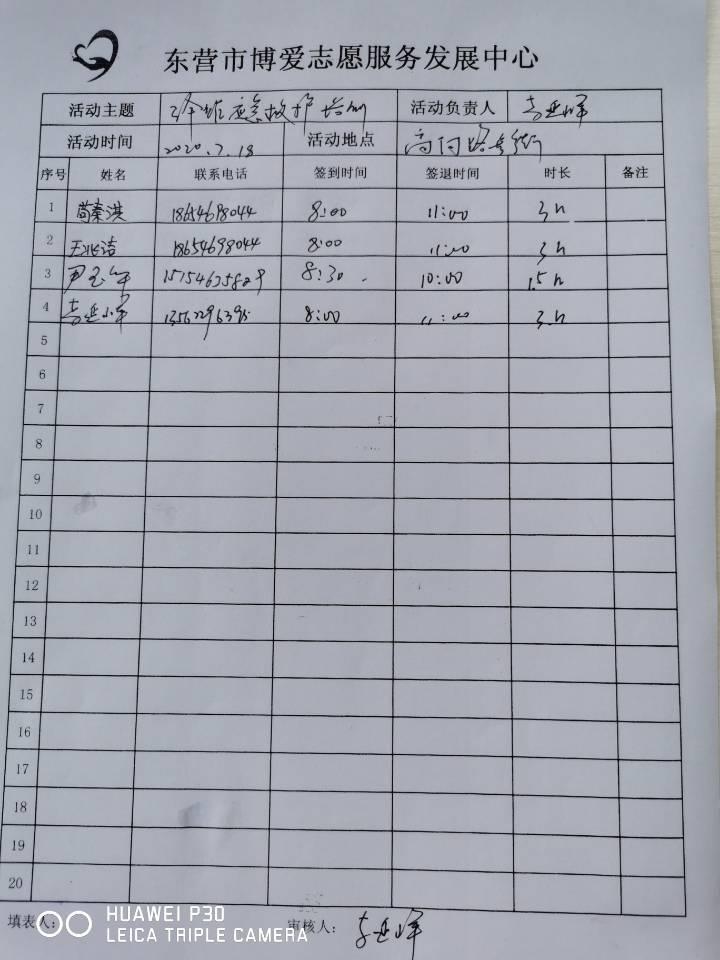 东营市博爱志愿服务发展中心
活动主题 应急救护培训 活动负责人
活动时间 2020.7.18 活动地点
序号 姓名 联系电话 签到时间 签退时间 时长 备注
1 荀秦洪 18654698044 8:00 11:00 3h
2 18654698044 8:00 11:00 3h
3 8:30 10:00 1.5h
4 13562296395 8:00 11:00 3h
5
6
7
8
9
10
11
12
13
14
15
16
17
18
19
20
填表人: 审核人:
HUAWEI P30
LEICA TRIPLE CAMERA